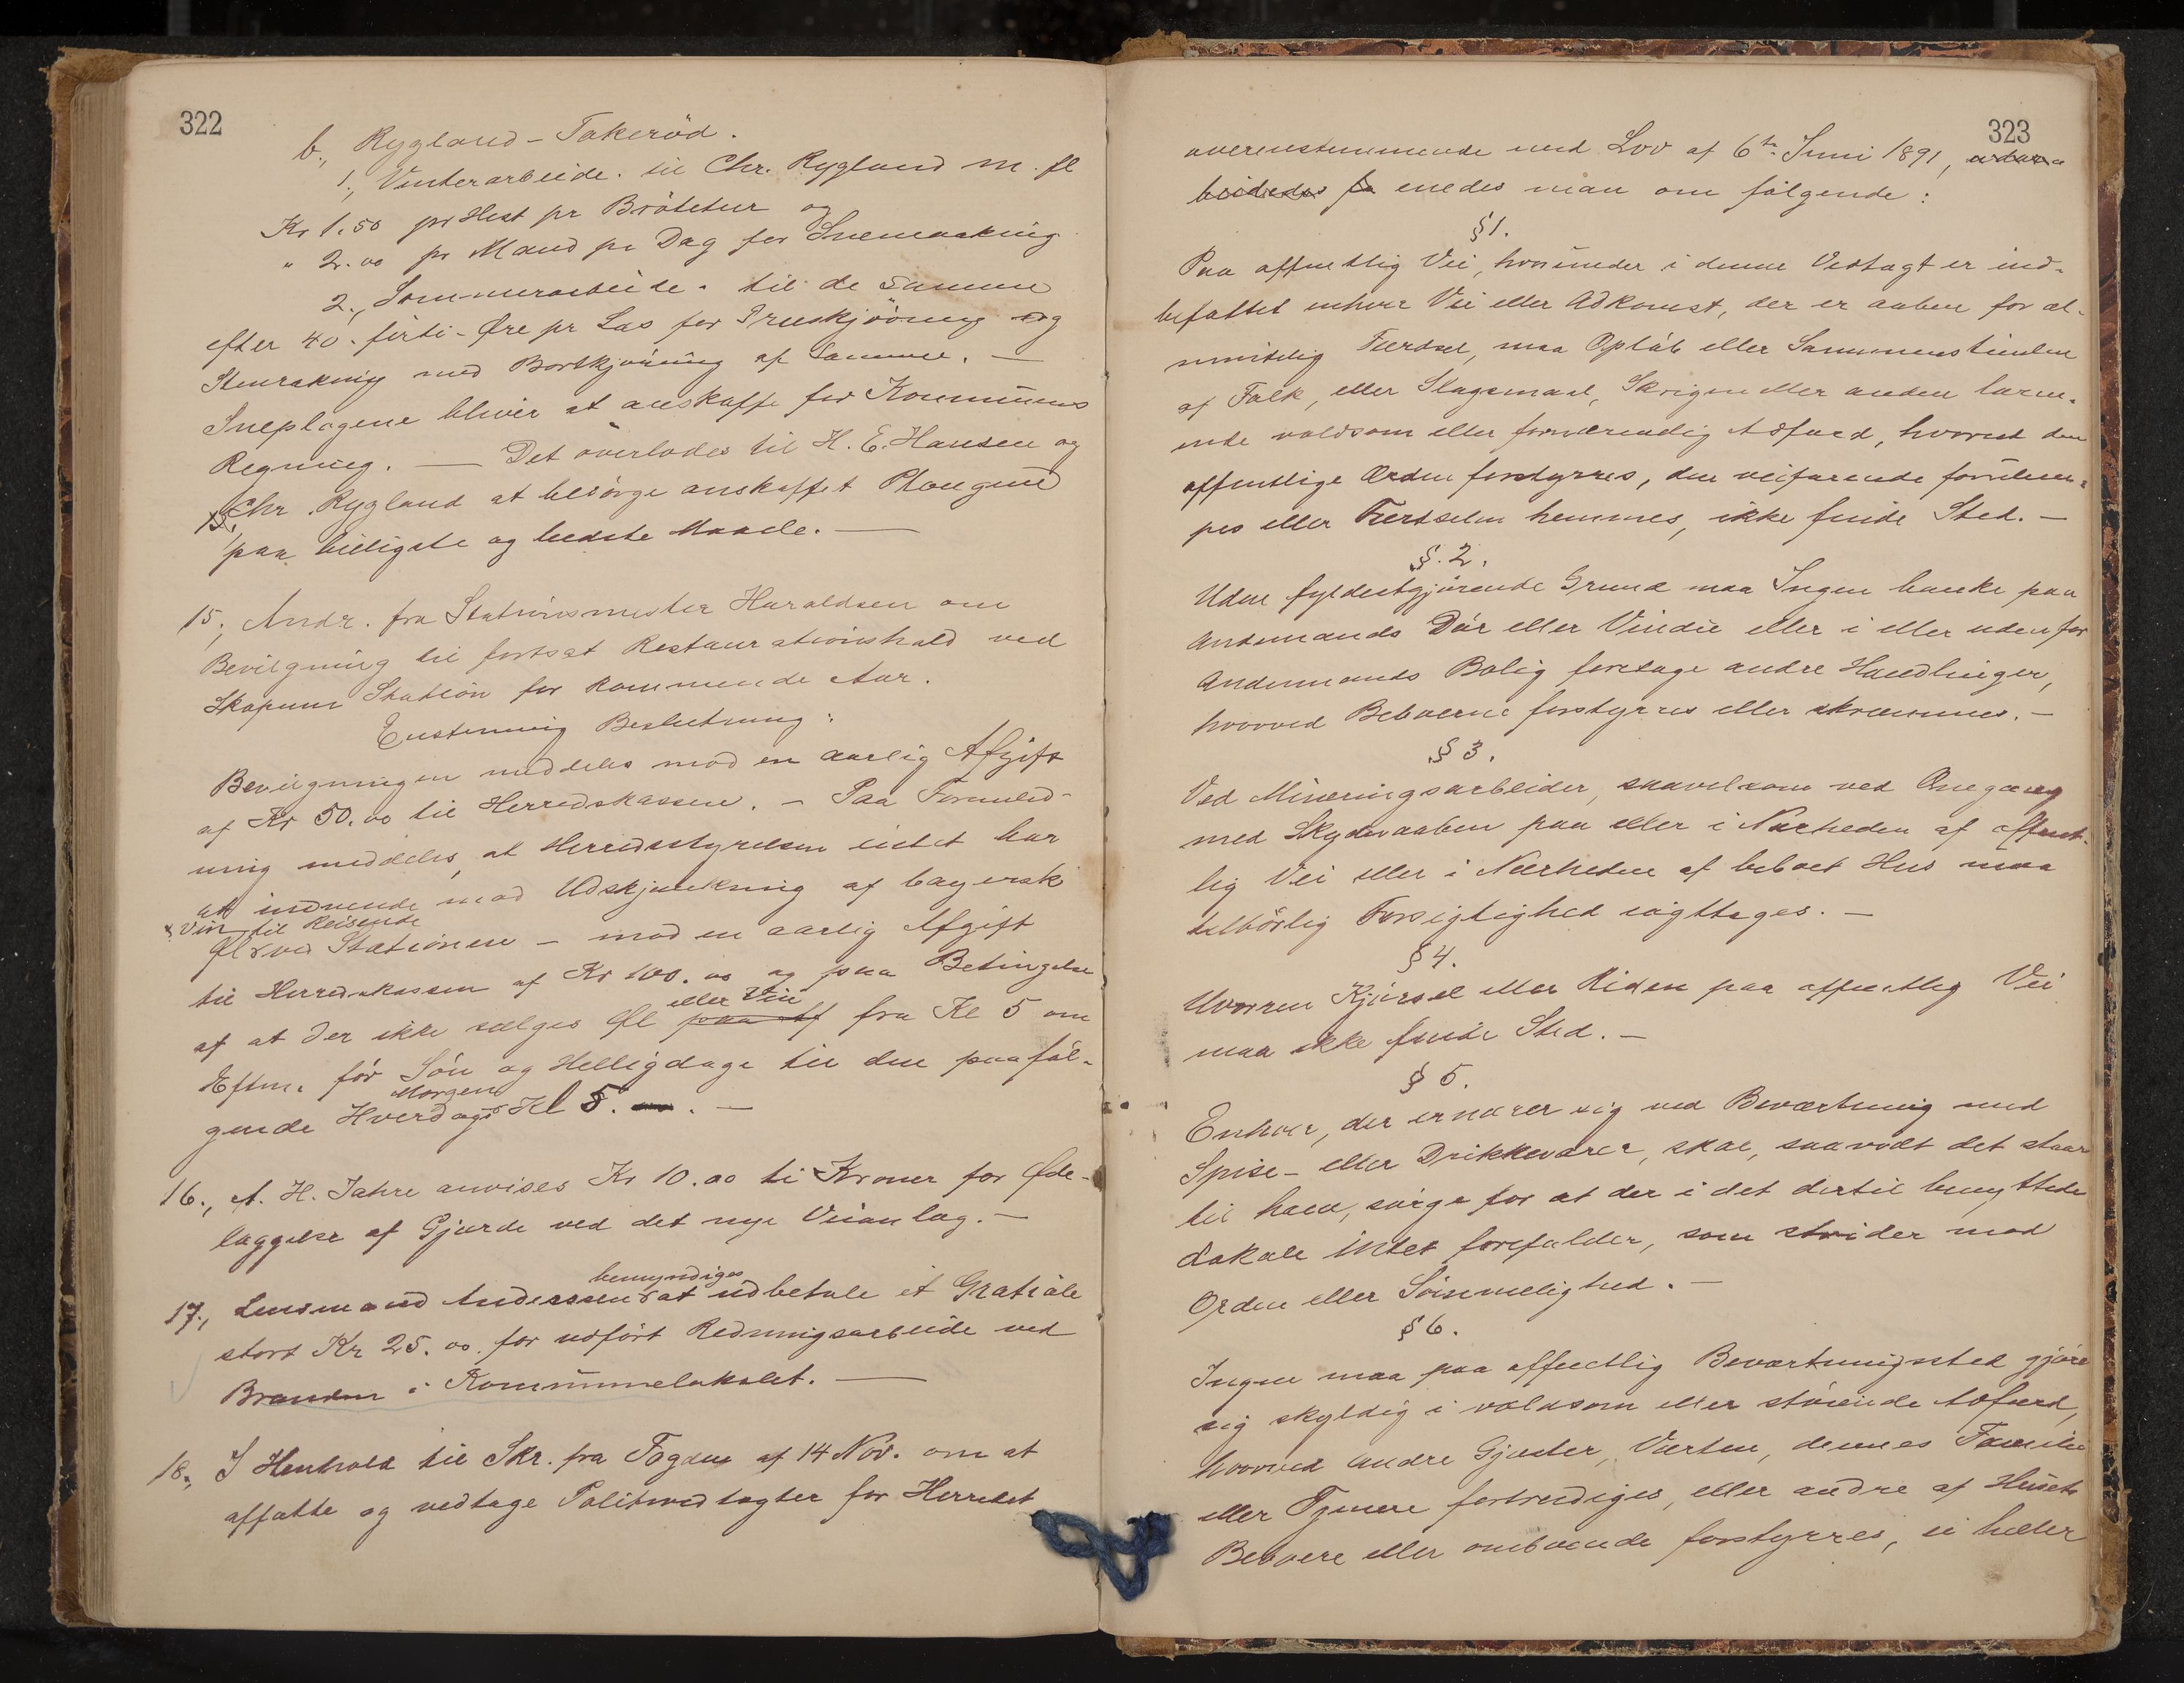 322
b., Rygland - Takeröd.
1., Vinterarbeide. til Chr. Rygland m. fl
Kr 1.50 pr Hest pr Brötetur og
" 2.00 pr Mand pr Dag for Snemaaking
2., Sommerarbeide. til de samme
efter 40. firti-Øre pr Las for Gruskjöring og
Stenrakning med Bortkjöring af samme. —
Sneplogene bliver at anskaffe for Kommunens
Regning. — Det överlodes til H. E. Hansen og
Chr. Rygland at besörge anskaffet
paa billigste og bedste Maade. —
15., Andr. fra Stationsmester Haraldsen om
Bevilgning til fortsat Restaurationshold ved
Skopum Station for kommende Aar.
Enstemmig Beslutning:
Bevilgningen meddeles mod en aarlig Afgift
af Kr 50.00 til Herredskassen. — Paa Formled-
ning meddeles, at Herredsstyrelsen intet har
at indvende mod Udskjænkning af bayersk
x Vin til Reisende
Øl x ved Stationen — mod en aarlig Afgift
til Herredskassen af Kr 100.00 og paa Betingelse
eller Vin
af at der ikke sælges Øl paa af fra Kl 5 om
Eftm. för Sön og Helligdage til den paaföl-
Morgen
gende Hverdags Kl 5. —
16., A. H. Jahre anvises Kr 10.00 ti Kroner for Øde-
læggelse af Gjærde ved det nye Veianlæg. —
bemyndiges
17., Lensmand Anderssen at udbetale et Gratiale
stort Kr 25.00. for udfört Redningsarbeide ved
Branden i Kommunelokalet. —
18., I Henhold til Skr. fra Fogden af 14 Nov. om at
affatte og vedtage Politivedtægter for Herredet
323
overenstemmende med Lov af 6te Juni 1891, udar
beidedes fo enedes man om fölgende:
§1.
Paa offentlig Vei, hvorunder i denne Vedtægt er ind-
befattet enhver Vei eller Adkomst, der er aaben for al-
mindelig Færdsel, maa Oplöb eller Sammenstimlen
af Folk, eller Slagsmaal, Skrigen eller anden larm-
ende voldsom eller fornærmelig Adfærd, hvorved den
offentlige Orden forstyrres, den veifarende forulem-
pes eller Færdselen hemmes, ikke finde Sted. —
§.2.
Uden fyldestgjörende Grund maa Ingen banke paa
Andenmands Dör eller Vindu eller i eller udenfor
Andenmands Bolig foretage andre Handlinger,
hvorved Beboerne forstyrres eller skræmmes. —
§3.
Ved Mineringsarbeider, saavelsom ved Omgang
med Skydevaaben paa eller i Nærheden af offent-
lig Vei eller i Nærheden af beboet Hus maa
tilbörlig Forsigtighed iagttages. —
§4.
Uvorren Kjörsel eller Riden paa offentlig Vei
maa ikke finde Sted. —
§5.
Enhver, der ernærer sig ved Beværtning med
Spise- eller Drikkevarer, skal, saavidt det staar
til ham, sörge for at der i det dertil benyttede
Lokale intet forefalder, som strider mod
Orden eller Sömmelighed. —
§6.
Ingen maa paa offentlig Beværtningssted gjöre
sig skyldig i voldsom eller stöiende Adfærd,
hvorved andre Gjæster, Værten, dennes Familie
eller Tjenere fortrædiges, eller andre af Husets
Beboere eller omboende forstyrres, ei heller